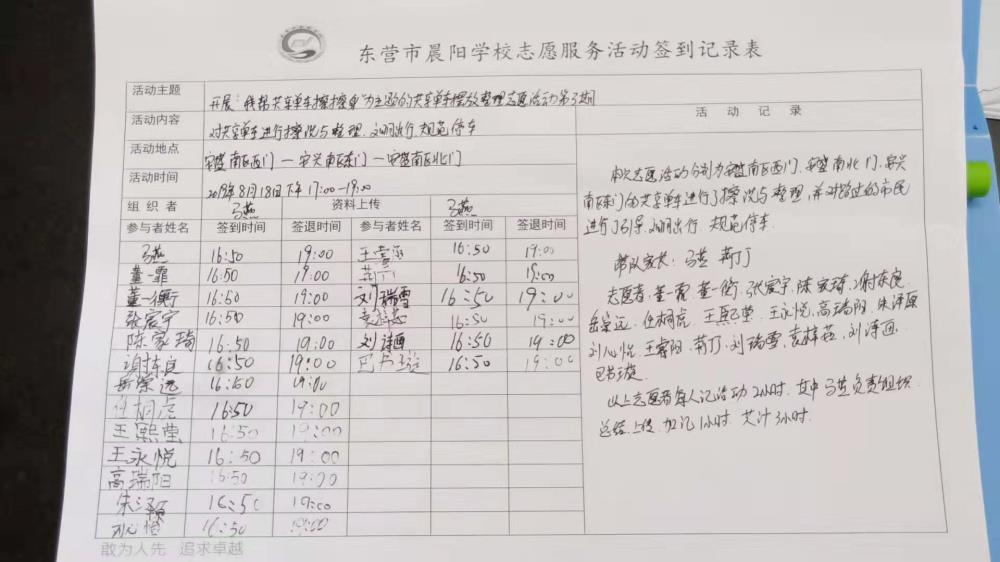 东营市晨阳学校志愿服务活动签到记录表
活动主题 开展"我帮共享单车擦擦身"为主题的共享单车摆放整理志愿活动第3期
活动内容 对共享单车进行擦洗与整理、文明出行、规范停车
活动地点 安盛南区西门 — 安兴南区东门 — 安盛南区北门
活动时间 2019年8月18日下午17:00—19:00
组织者 马燕 资料上传 马燕
参与者姓名 签到时间 签退时间 参与者姓名 签到时间 签退时间
马燕 16:50 19:00 王睿阳 16:50 19:00
董一霏 16:50 19:00 荊丁 16:50 19:00
董一衡 16:50 19:00 刘瑞雪 16:50 19:00
张宸宇 16:50 19:00 袁梓蕊 16:50 19:00
陈家琦 16:50 19:00 刘诗画 16:50 19:00
谢东良 16:50 19:00 巴书璇 16:50 19:00
岳崇远 16:50 19:00
任桐虎 16:50 19:00
王熙莹 16:50 19:00
王永悦 16:50 19:00
高瑞阳 16:50 19:00
朱泽颖 16:50 19:00
刘心悦 16:50 19:00
敢为人先 追求卓越
活动记录
本次志愿活动分别为安盛南区西门、安盛南北门、安兴
南区东门的共享单车进行了擦洗与整理,并对路过的市民
进行了引导、文明出行 规范停车.
带队家长: 马燕 荊丁
志愿者: 董一霏、董一衡、张宸宇、陈家琦、谢东良、
岳崇远、任桐虎、王熙莹、王永悦、高瑞阳、朱泽颖
刘心悦、王睿阳、荊丁、刘瑞雪、袁梓蕊、刘诗画、
巴书璇.
以上志愿者每人记活动2小时.其中马燕负责组织、
总结、上传,加记1小时.共计3小时.